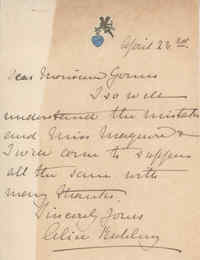 April 22nd.
Dear Monsieur
I so well
understand the mistake
and Miss &
I will come to supper
all the same with
many thanks.
Sincerely yours
Alice